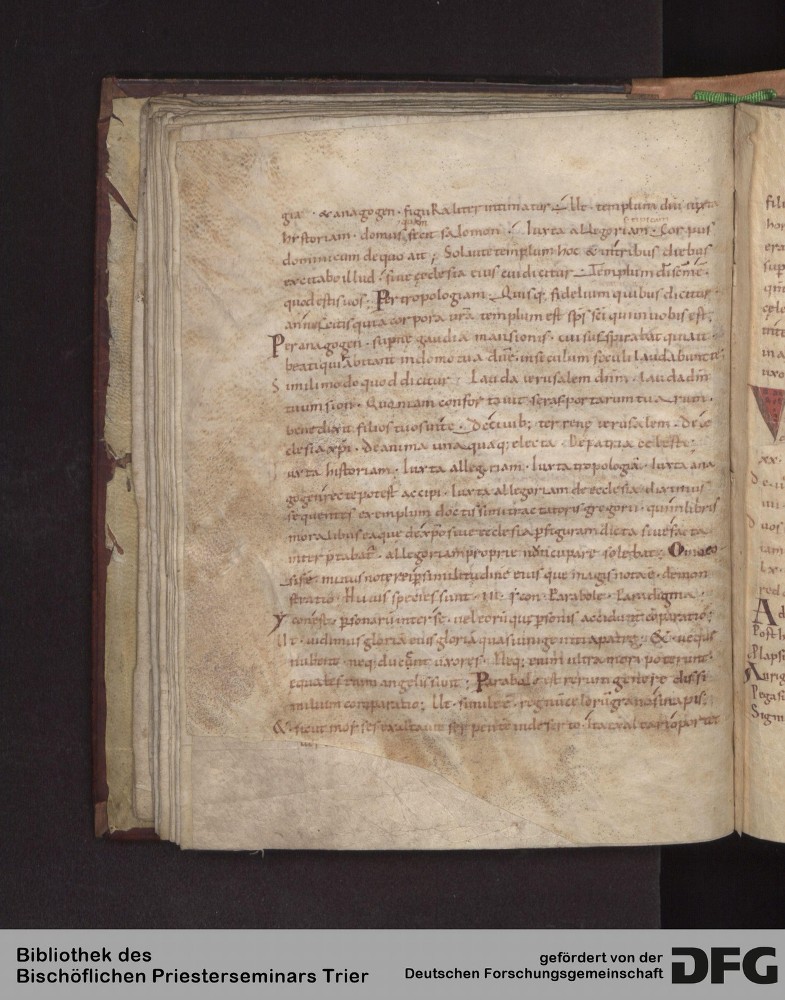 gia · & anagogen · figuraliter intimatur · Ut · templum dni iuxta
historiam · domus quam fecit salomon · Iuxta allegoriam · Corpus
dominicum de quo ait ; Solvite templum hoc & in tribus diebus
excitabo illud · sive ęcclesia eius cui dicitur · Templum
quod estis vos · Per tropologiam · Quisq; fidelium quibus dicitur ·
an nescitis quia corpora vra templum est sps sci qui in vobis est ;
Per anagogen · supnę gaudia mansionis · cui suspirabat qui ait
beati qui habitant in domo tua dne · in seculum sęculi laudabunt te ;
Simili modo quod dicitur · Lauda ierusalem dnm · lauda dm
tuum sion · Quoniam confortavit seras portarum tuarum ·
benedixit filiis tuis in te · De civib; terrenę ierusalem · De ęc
clesia xpi · De anima una quaq; electa · De patria cęlesti ·
iuxta historiam · Iuxta allegoriam · Iuxta tropologiā · Iuxta ana
gogen recte potest accipi · Iuxta allegoriam de ecclesia diximus
sequentes exemplum doctissimi tractatoris gregorii · qui in libris
moralibus ea quę de xpo sive ecclesia p figuram dicta sive facta
interptabat · allegoriam proprie nuncupare solebat · Omoeo
sis · minus notę rei p similitudinē eius quę magis nota ē · demon
stratio · Huius species sunt · III · Icon · Parabole · Paradigma ·
Ycon est · psonarū inter se · vel eorū quę psonis accidunt cōparatio ;
Ut · vidimus gloriā eius gloriā quasi unigeniti a patre ; Et · neque
nubent · neq; ducent uxores · Neq; enim ultra mori poterunt ·
equales enim angelis sunt ; Parabole est rerum genere dissi
milium comparatio ; Ut · simile ē · regnū cęlorū grano sinapis ;
&· sicut moyses exaltavit serpentē in deserto · ita exaltari oportet
filii
hor
era
sup
in a
uxo
xx ·
vos
iam
Ad
Post h
Auri
Pegasi
Sign
Bibliothek des
Bischöflichen Priesterseminars Trier
gefördert von der
Deutschen Forschungsgemeinschaft
DFG